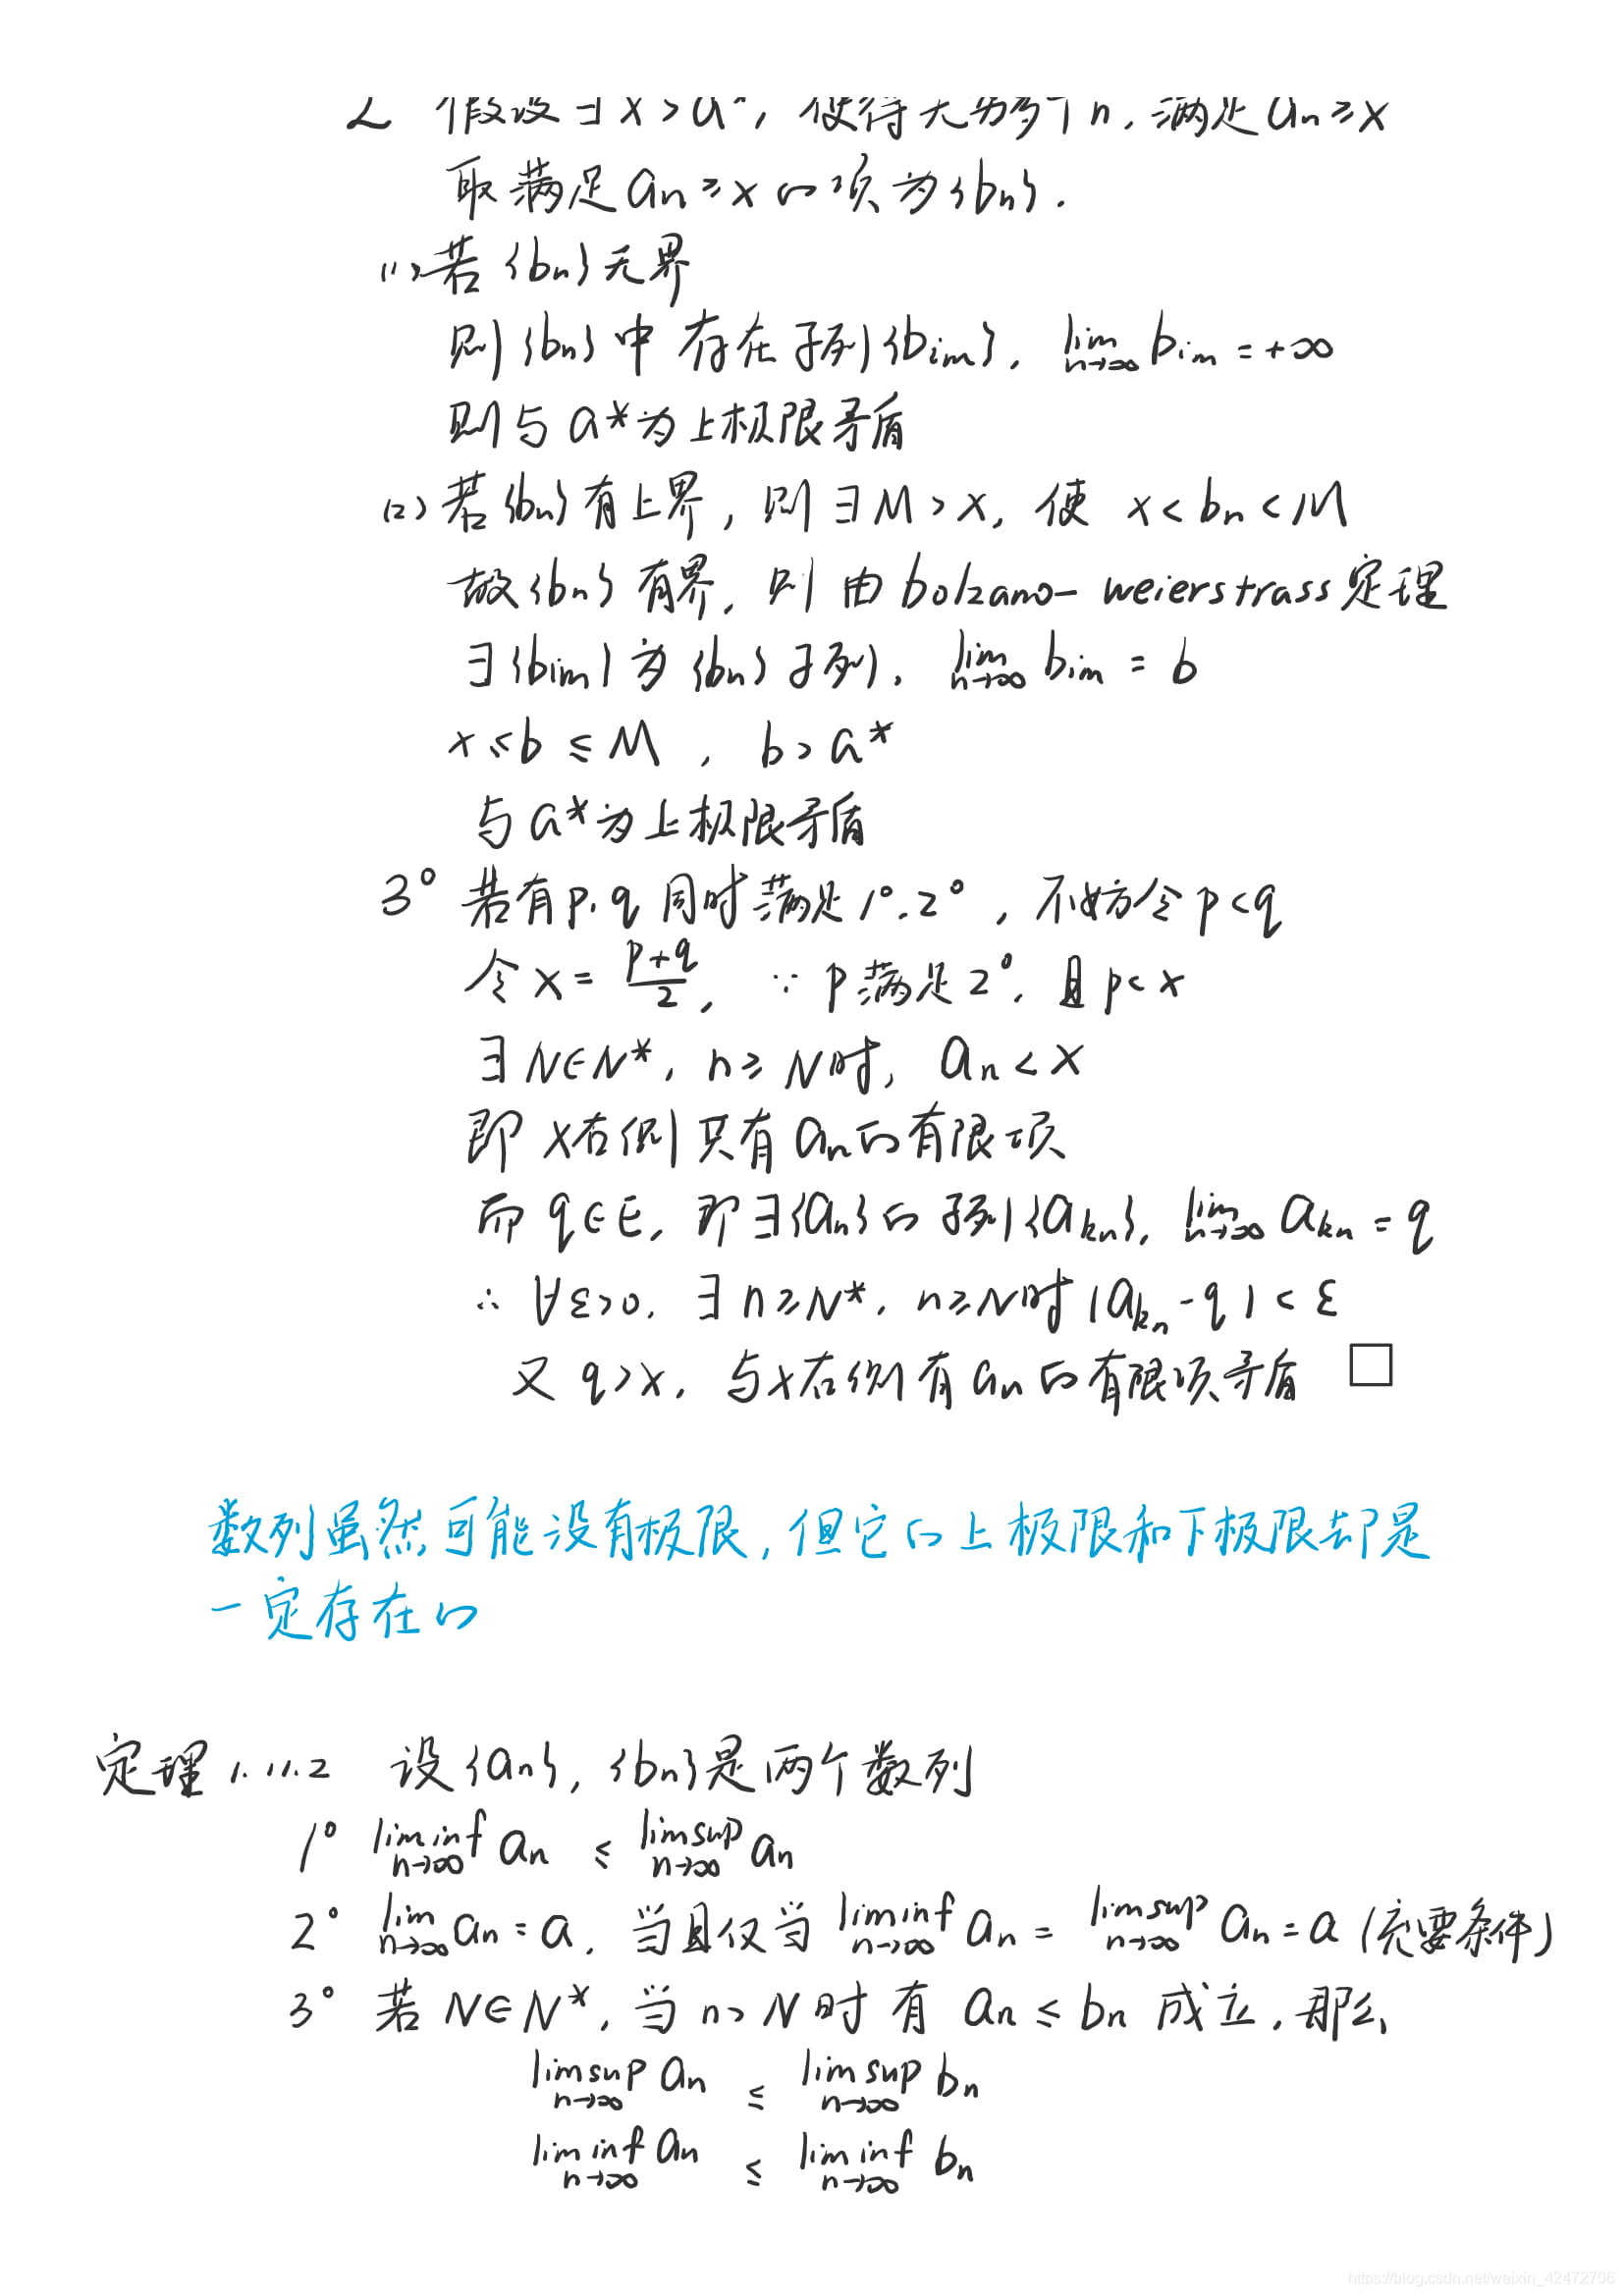 2° 假设∃x>a*，使得无穷多个n，满足an≥x
取满足an≥x的项为{bn}.
(1)若{bn}无界
则{bn}中存在子列{bim}，lim n→∞ bim=+∞
则与a*为上极限矛盾
(2)若{bn}有上界，则∃M>x，使 x<bn<M
故{bn}有界，则由bolzano-weierstrass定理
∃{bim}为{bn}子列，lim n→∞ bim = b
x≤b≤M，b>a*
与a*为上极限矛盾
3° 若有p，q同时满足1°.2°，不妨令p<q
令x=(p+q)/2，∵p满足2°，且p<x
∃N∈N*，n≥N时，an<x
即x右侧只有an的有限项
而q∈E，即∃{an}的子列{akn}，lim n→∞ akn=q
∴ ∀ε>0，∃n≥N*，n≥N时|akn-q|<ε
又q>x，与x右侧有an的有限项矛盾 □
数列虽然可能没有极限，但它的上极限和下极限却是
一定存在的
定理1.11.2 设{an}，{bn}是两个数列
1° lim inf n→∞ an ≤ lim sup n→∞ an
2° lim n→∞ an=a，当且仅当 lim inf n→∞ an = lim sup n→∞ an=a (充要条件)
3° 若N∈N*，当n>N时有 an≤bn 成立，那么
lim sup n→∞ an ≤ lim sup n→∞ bn
lim inf n→∞ an ≤ lim inf n→∞ bn
https://blog.csdn.net/weixin_42472706